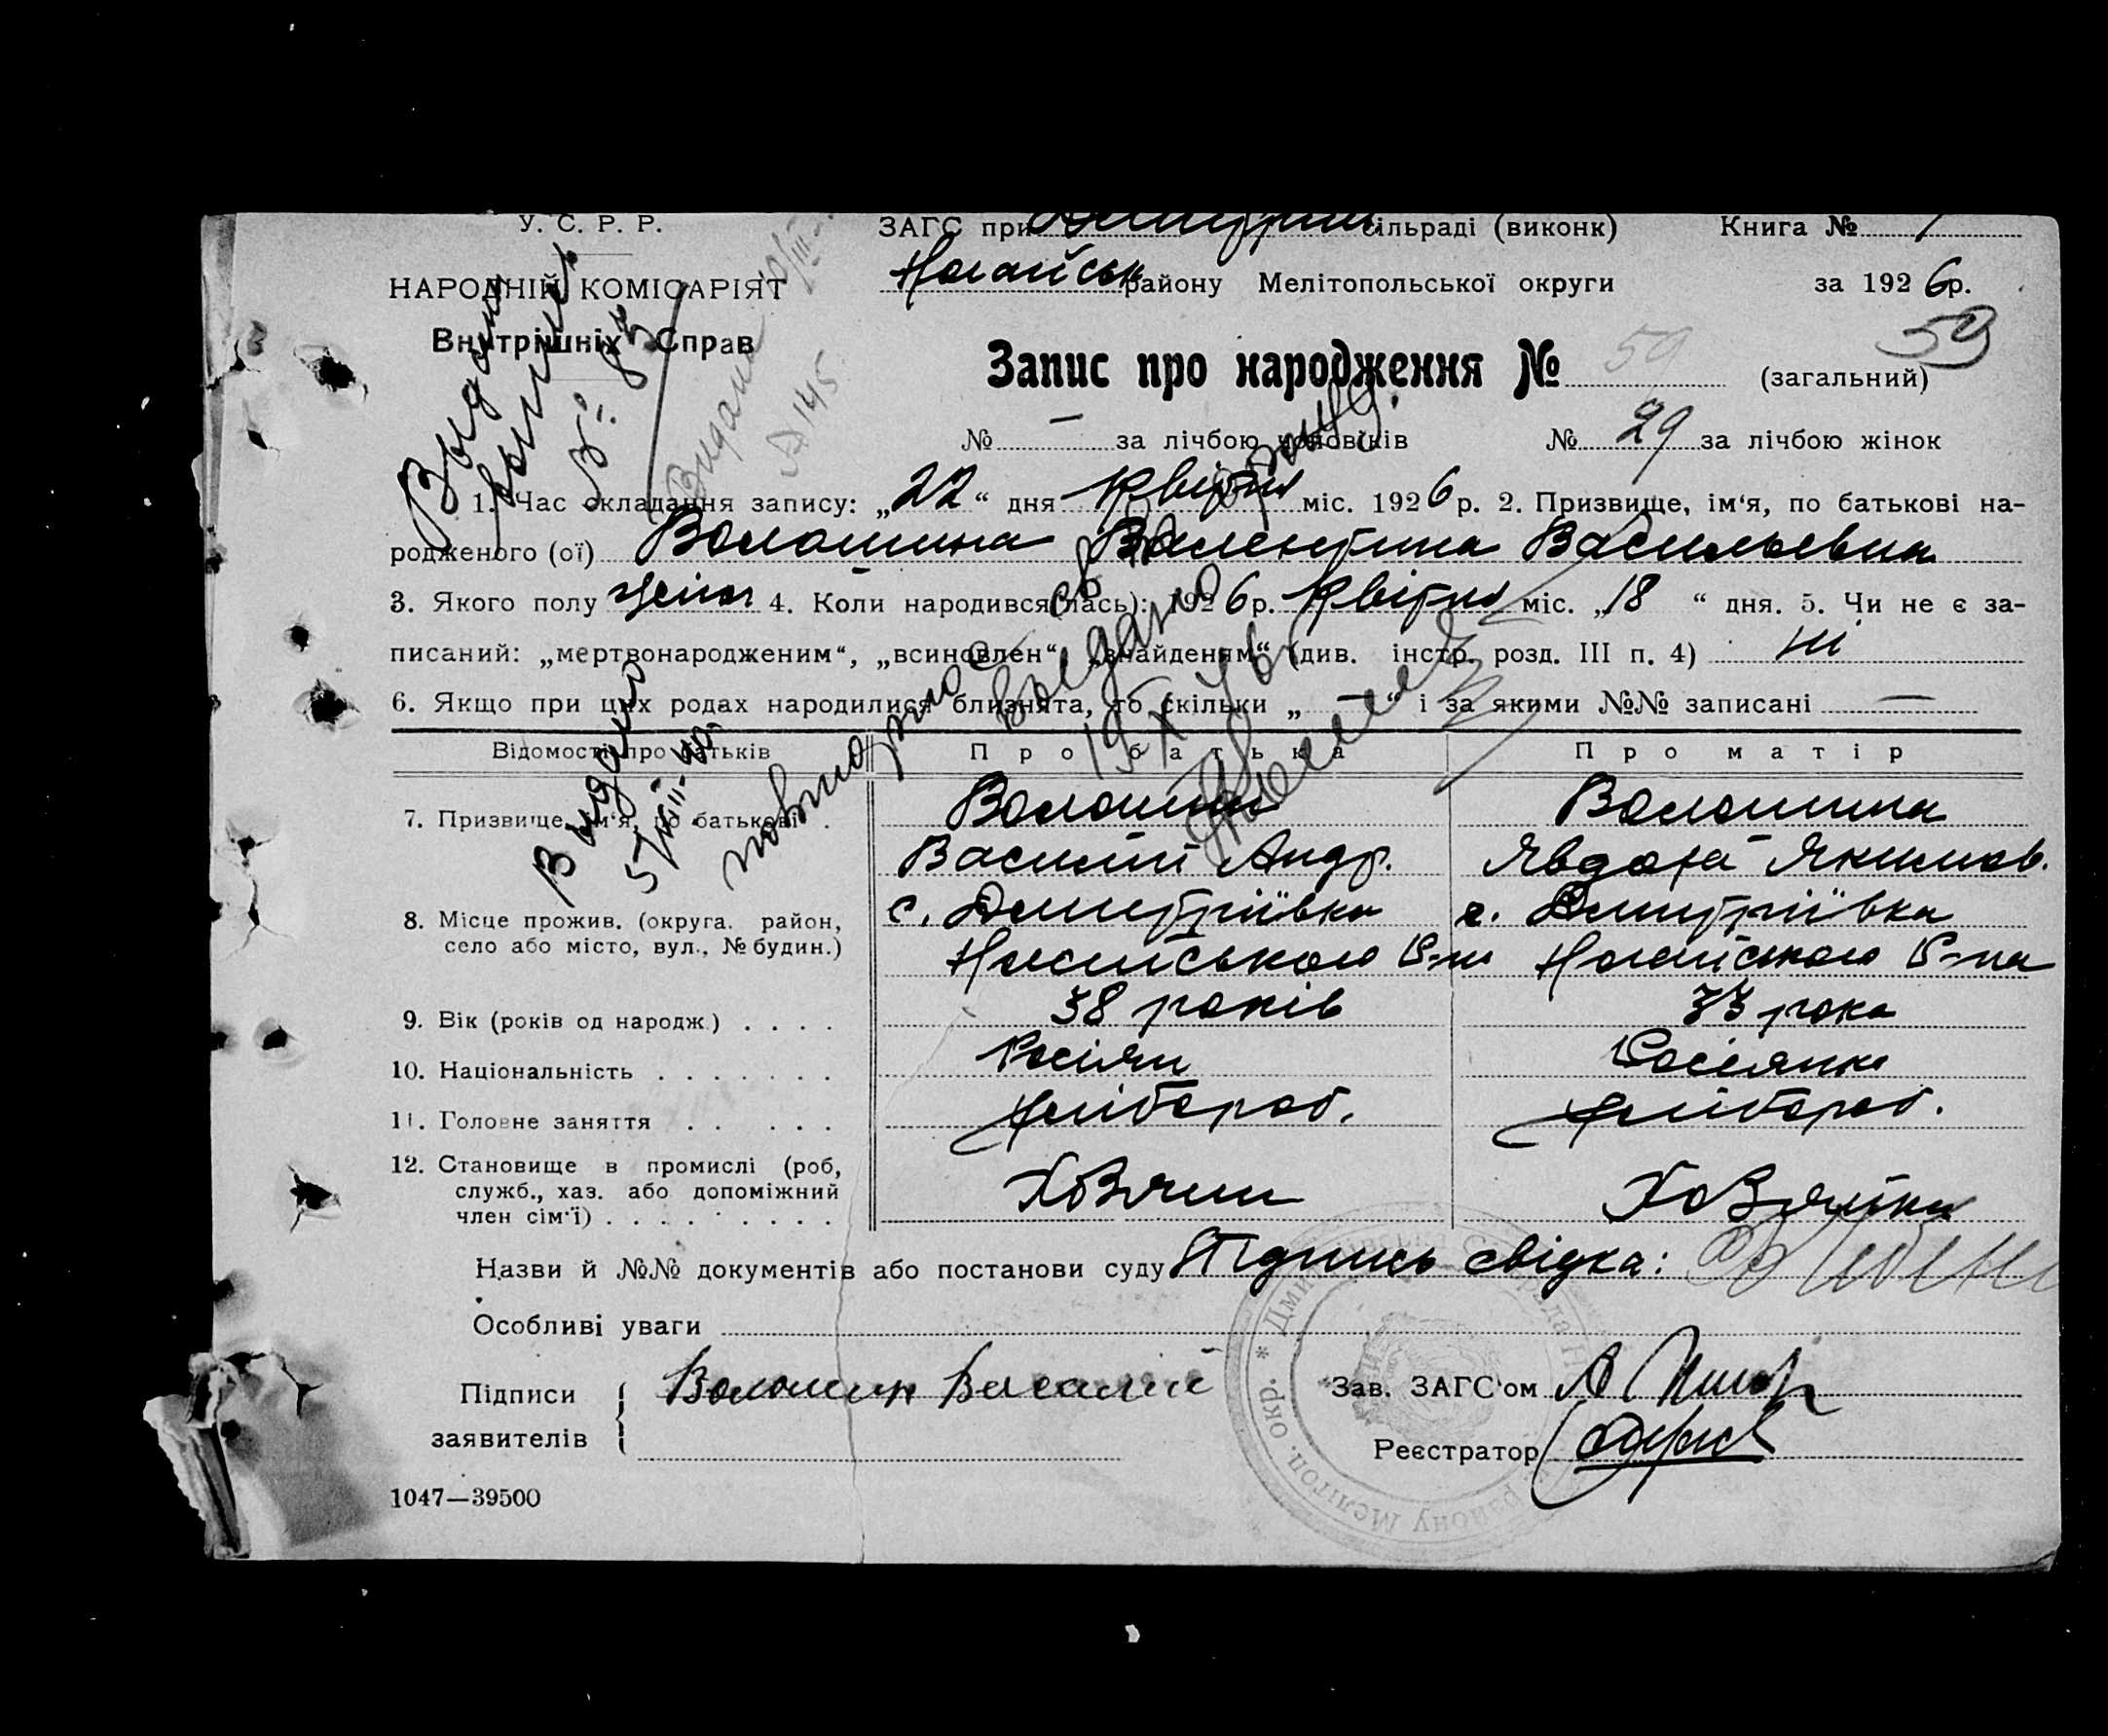 У. С. Р. Р.
НАРОДНІЙ КОМІСАРІЯТ
Внутрішніх Справ
ЗАГС при Дмитрівськ сільраді (виконк) Книга № 1
Ногайськ району Мелітопольської округи за 1926 р.
Запис про народження № 59 (загальний) 59
№ — за лічбою чоловіків № 29 за лічбою жінок
1. Час складання запису: „22“ дня Квітня міс. 1926 р. 2. Призвище, ім‘я, по батькові на-
родженого (ої) Волошина Валентина Васильевна
3. Якого полу жіноч 4. Коли народився (лась): 1926 р. Квітня міс. „18 “ дня. 5. Чи не є за-
писаний: „мертвонародженим“, „всиновлен“, „знайденям“ (див. інстр. розд. III п. 4) ні
6. Якщо при цих родах народилися близнята, то скільки „ — “ і за якими №№ записані —
Відомості про батьків Про батька Про матір
7. Призвище, ім‘я, по батькові . Волошин Волошина
Василій Андр. Явдоха Якимов.
8. Місце прожив. (округа. район, с. Дмитріївка с. Дмитріївка
село або місто, вул., № будин.) Ногайського Р-на Ногайського Р-на
9. Вік (років од народж.) . . . . 38 років 33 рока
10. Національність . . . . . . . Росіян Росіянка
11. Головне заняття . . . . . хлібороб. хлібороб.
12. Становище в промислі (роб,
служб., хаз. або допоміжний
член сім‘ї) . . . . . . . . . Хозяин Хозяйка
Назви й №№ документів або постанови суду Підпись свідка:
Особливі уваги
Підписи заявителів Волошин Василий
Зав. ЗАГС‘ом
Реєстратор
1047—39500
Видано
Видана
№ 145
Видано
5/VIII-40
повторное
выдано
19 X 46